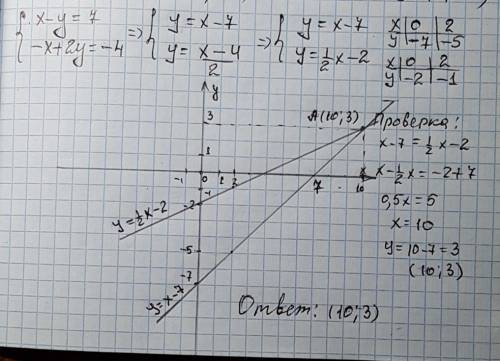 { x-y=7 => { y=x-7 => { y=x-7
{ -x+2y=-4 { y=(x-4)/2 { y=½x-2
x | 0 | 2
y | -7 | -5
x | 0 | 2
y | -2 | -1
y
3
1
-1 0 1 2 7 10 x
-1
-2
-5
-7
A(10;3)
y=½x-2
y=x-7
Проверка:
x-7=½x-2
x-½x=-2+7
0,5x=5
x=10
y=10-7=3
(10;3)
Ответ: (10;3)